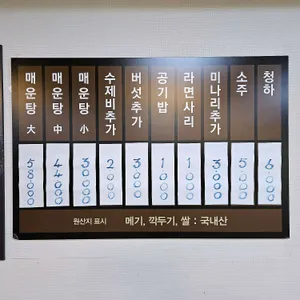 매운탕 大 58000
매운탕 中 44000
매운탕 小 30000
수제비추가 2000
버섯추가 3000
공기밥 1000
라면사리 1000
미나리추가 3000
소주 5.000
청하 6.000
원산지 표시 메기, 깍두기, 쌀 : 국내산